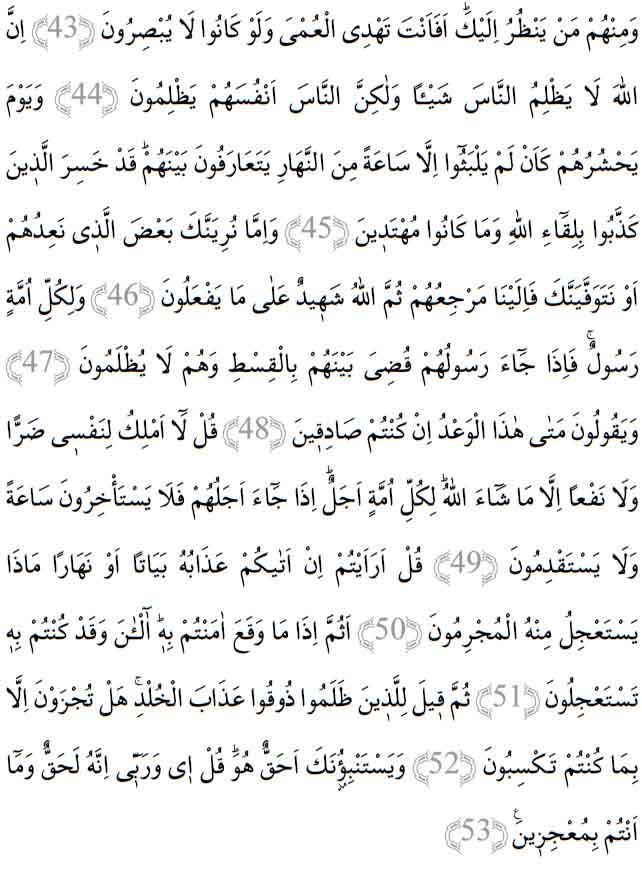 وَمِنْهُمْ مَنْ يَنْظُرُ اِلَيْكَۜ اَفَاَنْتَ تَهْدِي الْعُمْيَ وَلَوْ كَانُوا لَا يُبْصِرُونَ ﴿43﴾ اِنَّ
اللّٰهَ لَا يَظْلِمُ النَّاسَ شَيْـٔاً وَلٰكِنَّ النَّاسَ اَنْفُسَهُمْ يَظْلِمُونَ ﴿44﴾ وَيَوْمَ
يَحْشُرُهُمْ كَاَنْ لَمْ يَلْبَثُٓوا اِلَّا سَاعَةً مِنَ النَّهَارِ يَتَعَارَفُونَ بَيْنَهُمْۜ قَدْ خَسِرَ الَّذ۪ينَ
كَذَّبُوا بِلِقَٓاءِ اللّٰهِ وَمَا كَانُوا مُهْتَد۪ينَ ﴿45﴾ وَاِمَّا نُرِيَنَّكَ بَعْضَ الَّذ۪ي نَعِدُهُمْ
اَوْ نَتَوَفَّيَنَّكَ فَاِلَيْنَا مَرْجِعُهُمْ ثُمَّ اللّٰهُ شَه۪يدٌ عَلٰى مَا يَفْعَلُونَ ﴿46﴾ وَلِكُلِّ اُمَّةٍ
رَسُولٌۚ فَاِذَا جَٓاءَ رَسُولُهُمْ قُضِيَ بَيْنَهُمْ بِالْقِسْطِ وَهُمْ لَا يُظْلَمُونَ ﴿47﴾
وَيَقُولُونَ مَتٰى هٰذَا الْوَعْدُ اِنْ كُنْتُمْ صَادِق۪ينَ ﴿48﴾ قُلْ لَٓا اَمْلِكُ لِنَفْس۪ي ضَرًّا
وَلَا نَفْعاً اِلَّا مَا شَٓاءَ اللّٰهُۜ لِكُلِّ اُمَّةٍ اَجَلٌۜ اِذَا جَٓاءَ اَجَلُهُمْ فَلَا يَسْتَأْخِرُونَ سَاعَةً
وَلَا يَسْتَقْدِمُونَ ﴿49﴾ قُلْ اَرَاَيْتُمْ اِنْ اَتٰيكُمْ عَذَابُهُ بَيَاتًا اَوْ نَهَارًا مَاذَا
يَسْتَعْجِلُ مِنْهُ الْمُجْرِمُونَ ﴿50﴾ اَثُمَّ اِذَا مَا وَقَعَ اٰمَنْتُمْ بِه۪ۜ آٰلْـٰٔنَ وَقَدْ كُنْتُمْ بِه۪
تَسْتَعْجِلُونَ ﴿51﴾ ثُمَّ ق۪يلَ لِلَّذ۪ينَ ظَلَمُوا ذُوقُوا عَذَابَ الْخُلْدِۚ هَلْ تُجْزَوْنَ اِلَّا
بِمَا كُنْتُمْ تَكْسِبُونَ ﴿52﴾ وَيَسْتَنْبِؤُ۫نَكَ اَحَقٌّ هُوَۜ قُلْ ا۪ي وَرَبّ۪ٓي اِنَّهُ لَحَقٌّ وَمَٓا
اَنْتُمْ بِمُعْجِز۪ينَ۟ ﴿53﴾